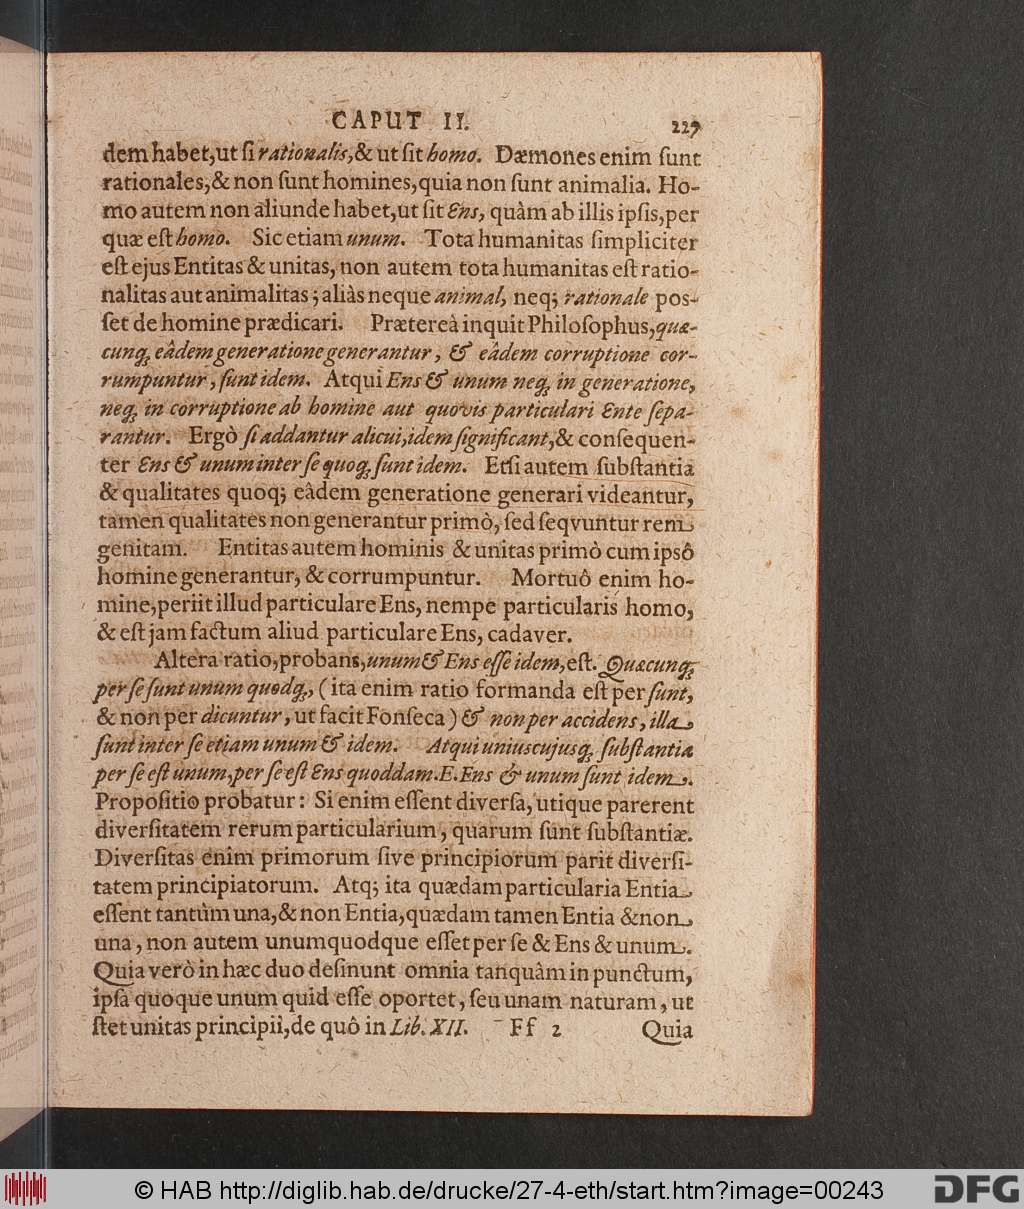 CAPUT II. 227
dem habet, ut si rationalis, & ut sit homo. Dæmones enim sunt
rationales, & non sunt homines, quia non sunt animalia. Ho-
mo autem non aliunde habet, ut sit Ens, quàm ab illis ipsis, per
quæ est homo. Sic etiam unum. Tota humanitas simpliciter
est ejus Entitas & unitas, non autem tota humanitas est ratio-
nalitas aut animalitas; aliàs neque animal, neq; rationale pos-
set de homine prædicari. Prætereà inquit Philosophus, quæ-
cunq; eâdem generatione generantur, & eâdem corruptione cor-
rumpuntur, sunt idem. Atqui Ens & unum neq; in generatione,
neq; in corruptione ab homine aut quovis particulari Ente sepa-
rantur. Ergò si addantur alicui, idem significant, & consequen-
ter Ens & unum inter se quoq; sunt idem. Etsi autem substantia
& qualitates quoq; eâdem generatione generari videantur,
tamen qualitates non generantur primò, sed seqvuntur rem
genitam. Entitas autem hominis & unitas primò cum ipsô
homine generantur, & corrumpuntur. Mortuô enim ho-
mine, periit illud particulare Ens, nempe particularis homo,
& est jam factum aliud particulare Ens, cadaver.
Altera ratio, probans, unum & Ens esse idem, est. Quæcunq;
per se sunt unum quodq;, (ita enim ratio formanda est per sunt,
& non per dicuntur, ut facit Fonseca) & non per accidens, illa
sunt inter se etiam unum & idem. Atqui uniuscujusq; substantia
per se est unum, per se est Ens quoddam. E. Ens & unum sunt idem.
Propositio probatur: Si enim essent diversa, utique parerent
diversitatem rerum particularium, quarum sunt substantiæ.
Diversitas enim primorum sive principiorum parit diversi-
tatem principiatorum. Atq; ita quædam particularia Entia
essent tantùm una, & non Entia, quædam tamen Entia & non
una, non autem unumquodque esset per se & Ens & unum.
Quia verò in hæc duo desinunt omnia tanquàm in punctum,
ipsa quoque unum quid esse oportet, seu unam naturam, ut
stet unitas principii, de quô in Lib. XII. Ff 2 Quia
© HAB http://diglib.hab.de/drucke/27-4-eth/start.htm?image=00243 DFG